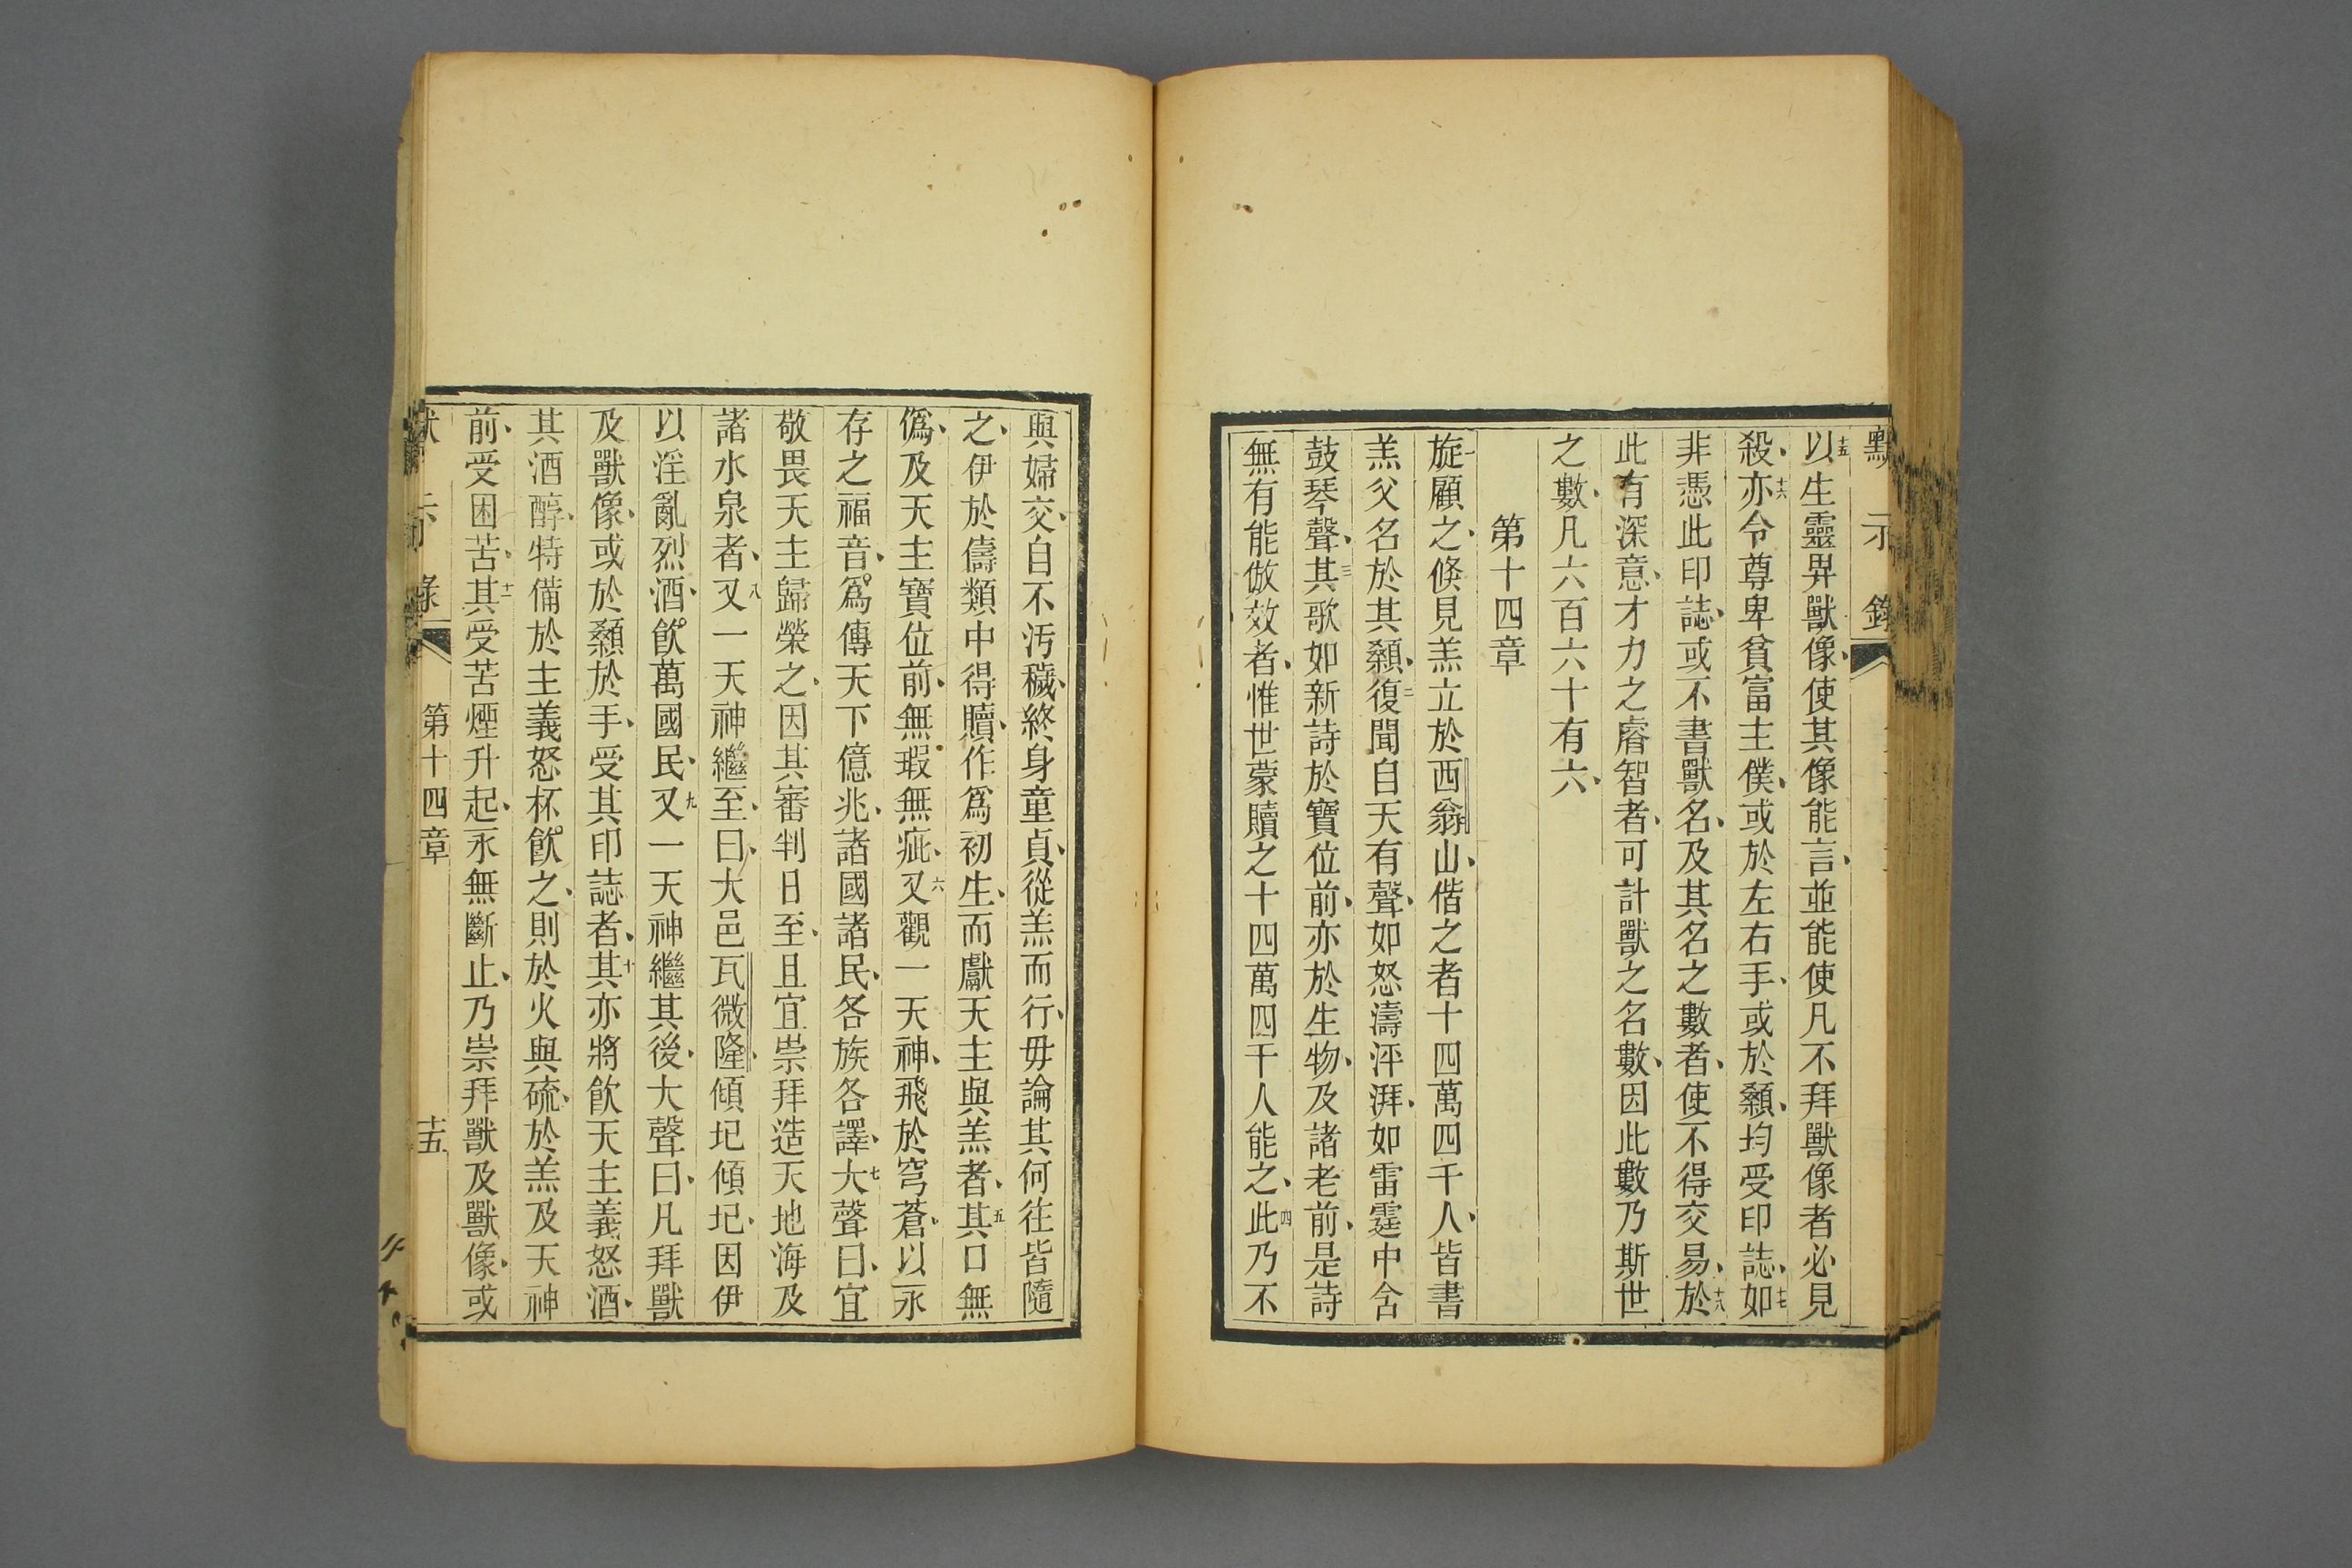 默示錄
以十五生靈畀獸像、使其像能言、並能使凡不拜獸像者必見
殺、亦十六令尊卑貧富主僕、或於左右手、或於顙、均受印誌、如十七
非憑此印誌、或不書獸名、及其名之數者、使不得交易、於十八
此有深意、才力之睿智者、可計獸之名數、因此數乃斯世
之數、凡六百六十有六、
第十四章
旋一顧之、倐見羔立於西翁山、偕之者十四萬四千人、皆書
羔父名於其顙、復二聞自天有聲、如怒濤泙湃、如雷霆中含
鼓琴聲、其三歌如新詩於寶位前、亦於生物、及諸老前、是詩
無有能倣效者、惟世蒙贖之十四萬四千人能之、此四乃不
與婦交、自不汚穢、終身童貞、從羔而行、毋論其何往皆隨
之、伊於儔類中得贖、作爲初生、而獻天主與羔者、其五口無
僞、及天主寶位前、無瑕無疵、又六觀一天神、飛於穹蒼、以永
存之福音、爲傳天下億兆、諸國諸民、各族各譯、大七聲曰、宜
敬畏天主歸榮之、因其審判日至、且宜崇拜造天地海及
諸水泉者、又八一天神繼至、曰、大邑瓦微隆、傾圮傾圮、因伊
以淫亂烈酒、飮萬國民、又九一天神繼其後、大聲曰、凡拜獸
及獸像、或於顙於手、受其印誌者、其十亦將飮天主義怒酒、
其酒醇、特備於主義怒杯、飮之、則於火與硫、於羔及天神
前、受困苦、其十一受苦煙升起、永無斷止、乃崇拜獸及獸像、或
示錄 第十四章 十五